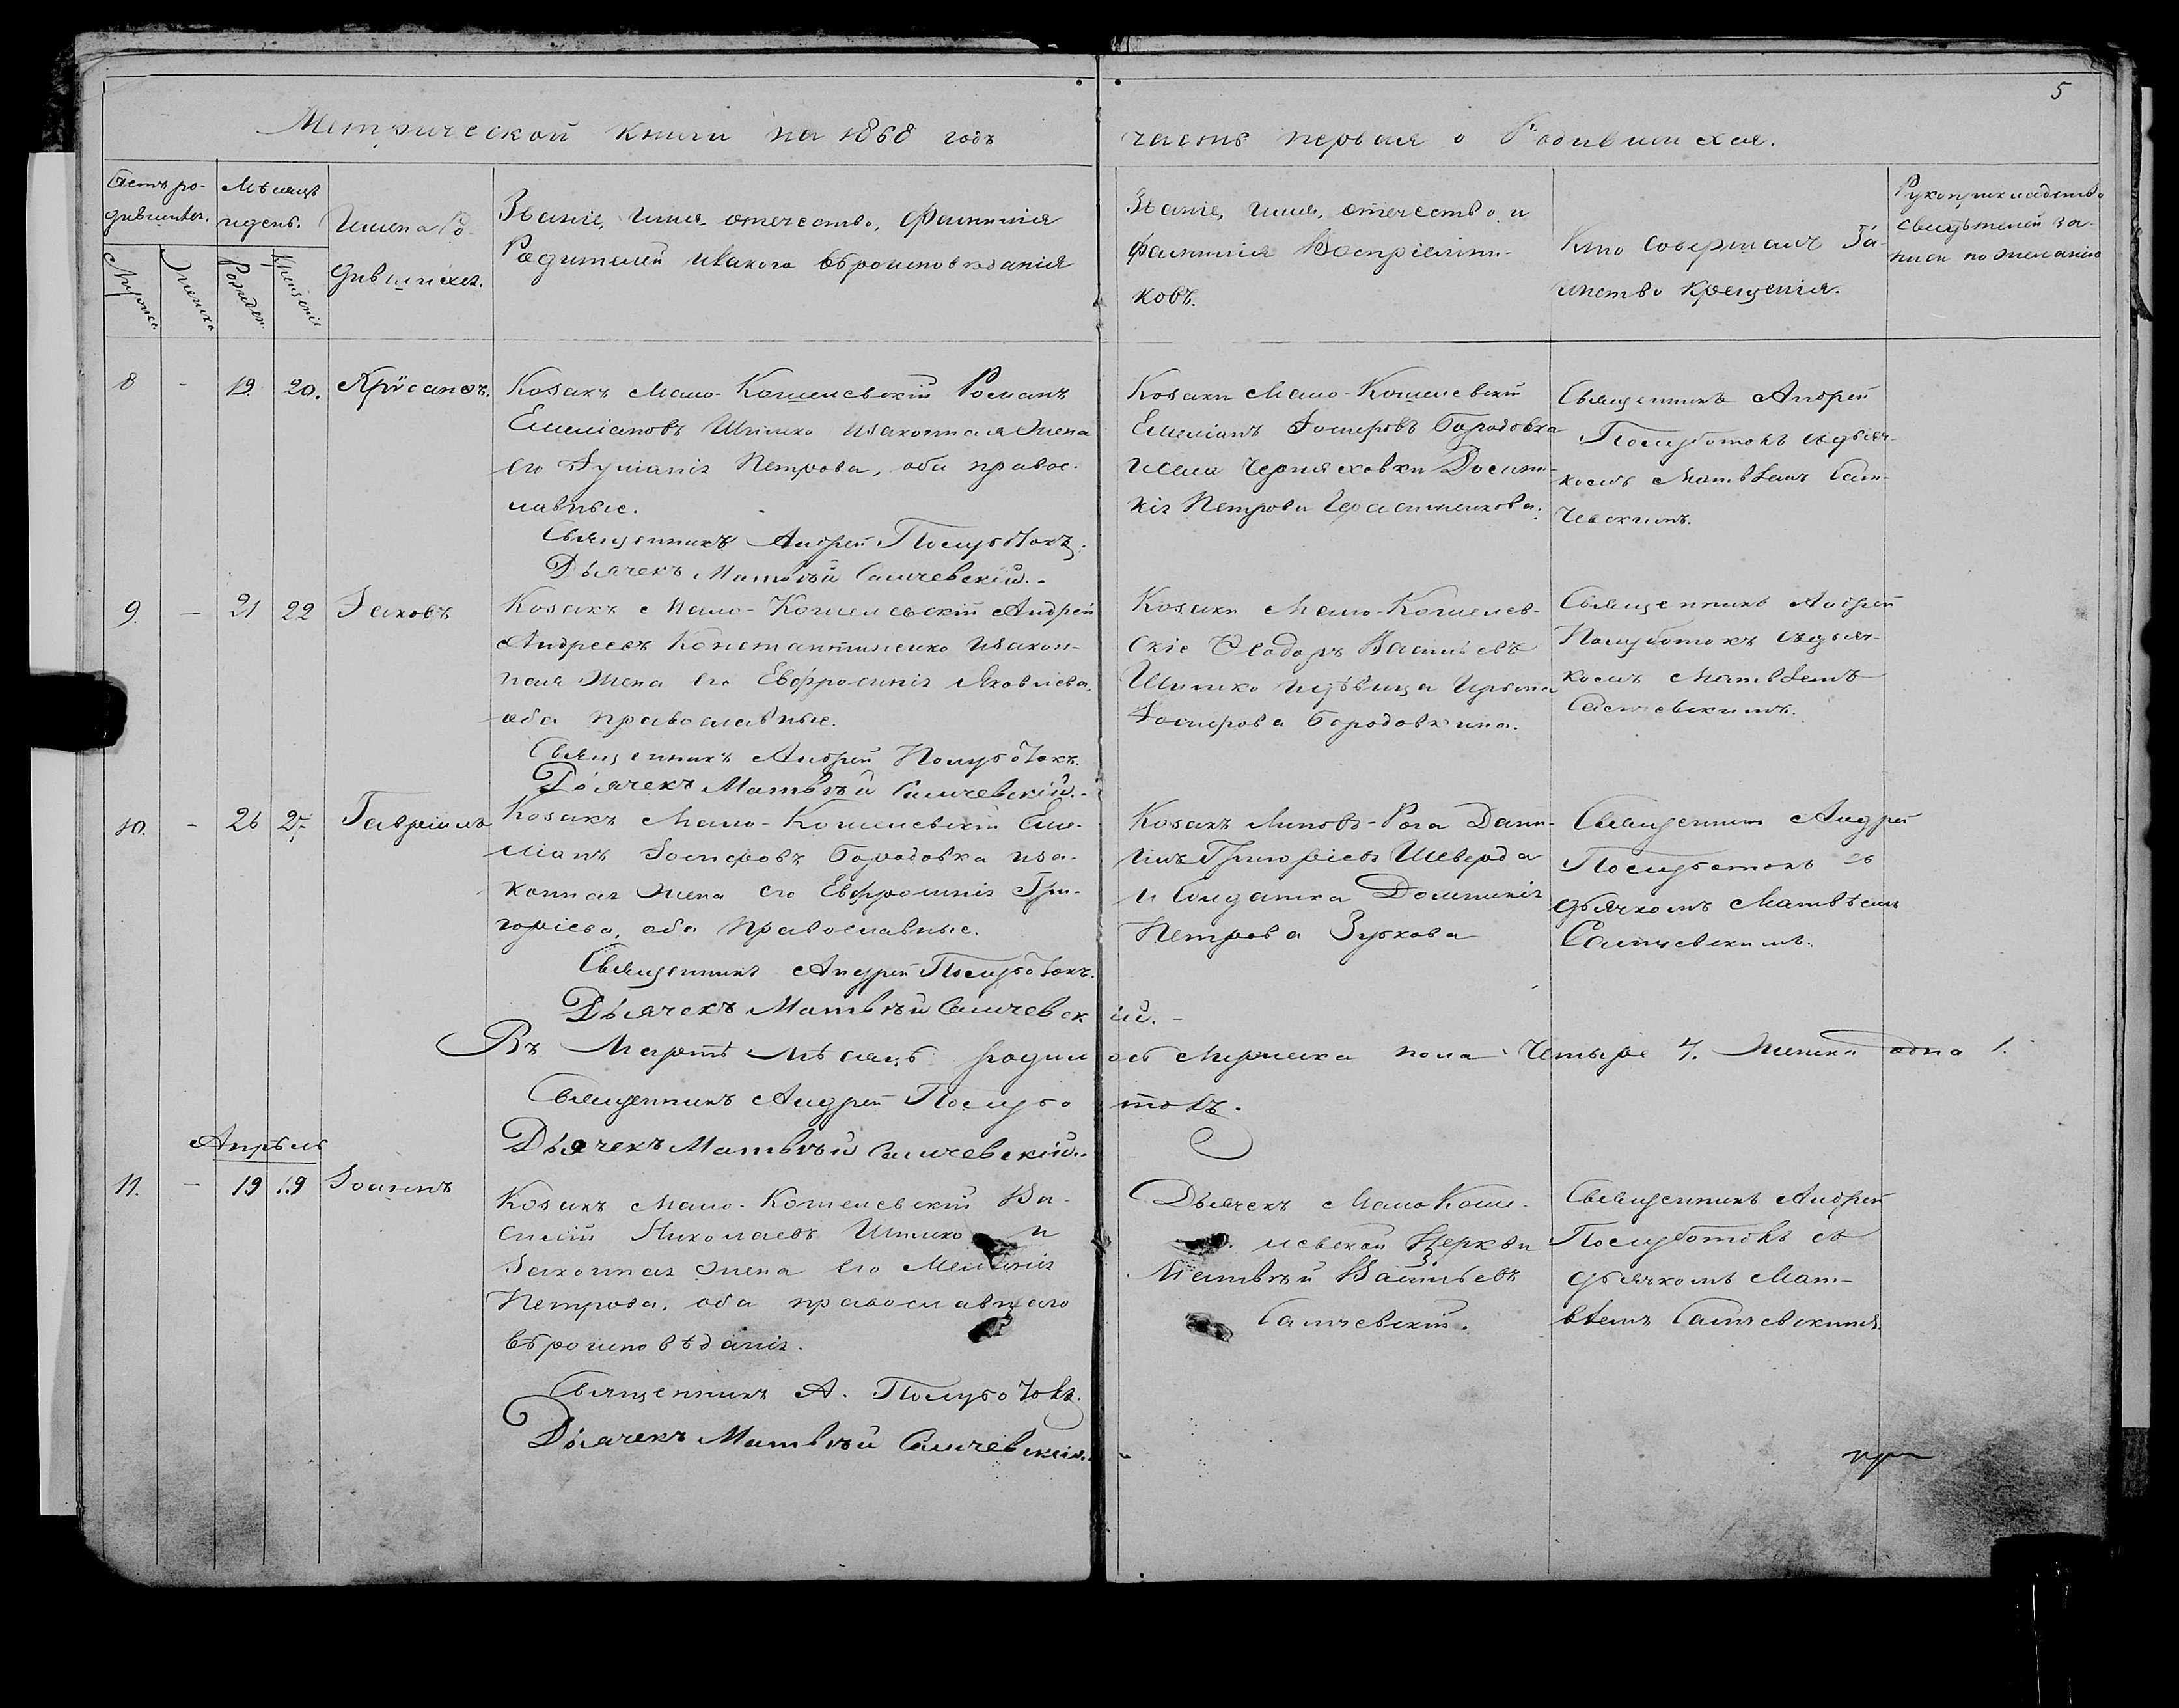 5
Метрической книги на 1868 годъ
часть первая о Родившихся.
Счетъ ро-
дившихся.
Мужеск.
Женска
Мѣсяцъ
и день.
Рожден.
Крещение
Имена Ро-
дившихся.
Званіе, имя, отечество, фамилія
Родителей и какого вѣроисповѣданія
Званіе, имя, отечество и
фамилія Воспріемни-
ковъ.
Кто совершалъ Та-
инство крещенія.
Рукоприкладство
свидѣтелей за-
писи по желанію
8 - 19. 20. Хрисанѳъ.
Козакъ Мало-Кошелевскій Романъ
Емеліановъ Шпилько и законная жена
его Іуліанія Петрова, оба правос-
лавные.
Священникъ Андрей Полуботокъ.
Дьячекъ Матвѣй Самчевскій.
Козаки Мало-Кошелевскій
Емеліанъ Іосифовъ Бородовка
Черняховки Домни-
кія Петрова
Священникъ Андрей
Полуботокъ съ дьяч-
комъ Матвѣемъ Сам-
чевскимъ.
9. - 21 22 Іаковъ
Козакъ Мало-Кошелевскій Андрей
Андреевъ Константиненко и закон-
ная жена его Евфросинія Яковлева,
оба православные.
Священникъ Андрей Полуботокъ.
Дьячекъ Матвѣй Самчевскій.
Козаки Мало-Кошелев-
скіе Ѳеодоръ Васильевъ
Шпилько и дѣвица Ирина
Іосифова Бородовкина.
Священникъ Андрей
Полуботокъ съ дьяч-
комъ Матвѣемъ
Самчевскимъ.
10. - 26 27 Гавріилъ
Козакъ Мало-Кошелевскій Еме-
ліанъ Іосифовъ Бородовка и за-
конная жена его Евфросинія Гри-
горіева, оба Православные.
Священникъ Андрей Полуботокъ.
Дьячекъ Матвѣй Самчевскій.
Козакъ Липова-Рога Дани-
илъ Григоріевъ Шеверда
и Солдатка Домникія
Петрова Зубкова
Священникъ Андрей
Полуботокъ съ
дьячкомъ Матвѣемъ
Самчевскимъ.
Въ Мартѣ Мѣсяцѣ родилось Мужеска пола Четыре 4. Женска одна 1.
Священникъ Андрей Полуботокъ.
Дьячекъ Матвѣй Самчевскій.
Апрѣль
11. - 19 19 Іоаннъ
Козакъ Мало-Кошелевскій Ва-
силій Николаевъ Шпилько и
Законная жена его Меланія
Петрова, оба православнаго
вѣроисповѣданія.
Священникъ А. Полуботокъ.
Дьячекъ Матвѣй Самчевскій.
Дьячекъ Мало Коше-
левской Церкви
Матвѣй Васильевъ
Самчевскій.
Священникъ Андрей
Полуботокъ съ
дьячкомъ Мат-
вѣемъ Самчевскимъ.